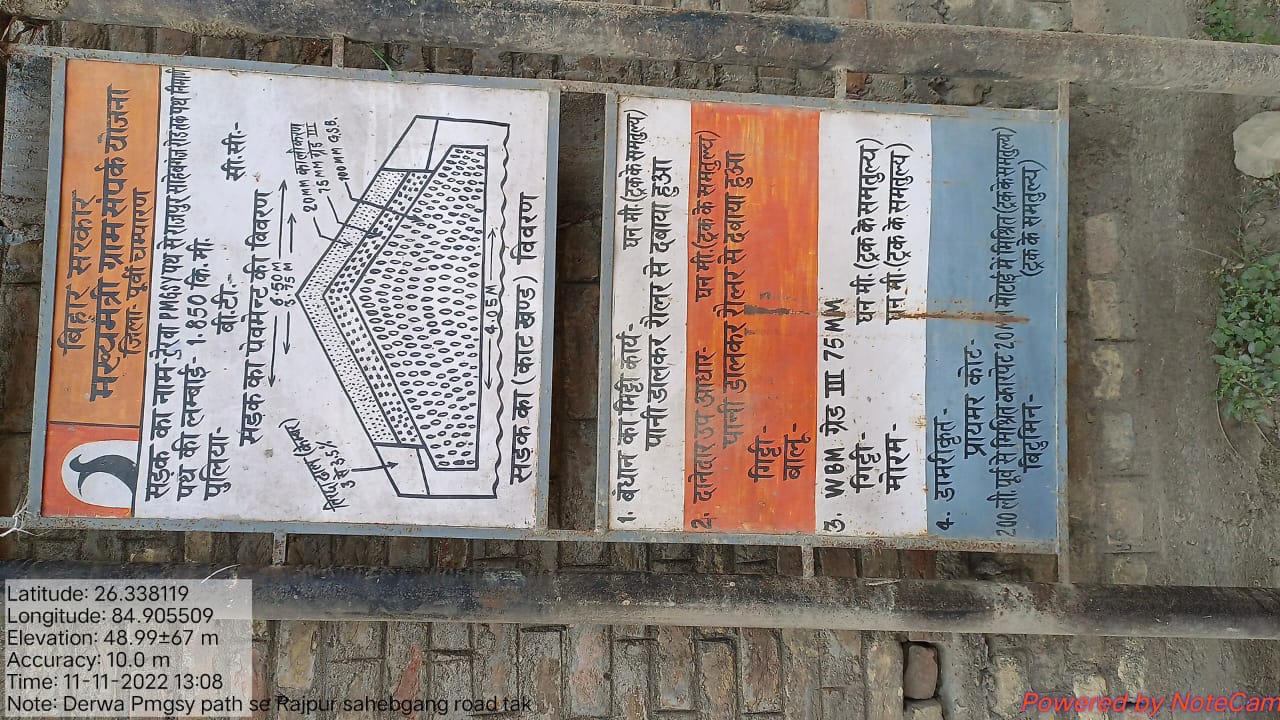 बिहार सरकार
मुख्यमंत्री ग्राम संपर्क योजना
जिला- पूर्वी चम्पारण
सड़क का नाम- देरवा PMGSY पथ से राजपुर साहेबगंज रोड तक पथ निर्माण
पथ की लम्बाई- 1.850 कि.मी.
पुलिया- बी.टी.- सी.सी.-
सड़क का पेवमेन्ट की विवरण
6.50 M
3.75 M
20MM कालीकरण
75 MM ग्रेड III
100MM G.S.B.
4.05 M
सड़क का (काट खण्ड) विवरण
1. बंधान का मिट्टी कार्य- घन मी (ट्रक के समतुल्य)
पानी डालकर रोलर से दबाया हुआ
2. दानेदार उप आधार- घन मी.(ट्रक के समतुल्य)
पानी डालकर रोलर से दबाया हुआ
गिट्टी-
बालू-
3. WBM ग्रेड III 75MM
गिट्टी- घन मी (ट्रक के समतुल्य)
मोरम- घन मी (ट्रक के समतुल्य)
4. डामरीकृत-
प्रायमर कोट-
200 ली. पूर्व से मिश्रित कारपेट 20M मोटाई में मिश्रित (ट्रक के समतुल्य)
बिटुमिन- (ट्रक के समतुल्य)
Latitude: 26.338119
Longitude: 84.905509
Elevation: 48.99±67 m
Accuracy: 10.0 m
Time: 11-11-2022 13:08
Note: Derwa Pmgsy path se Rajpur sahebgang road tak
Powered by NoteCam